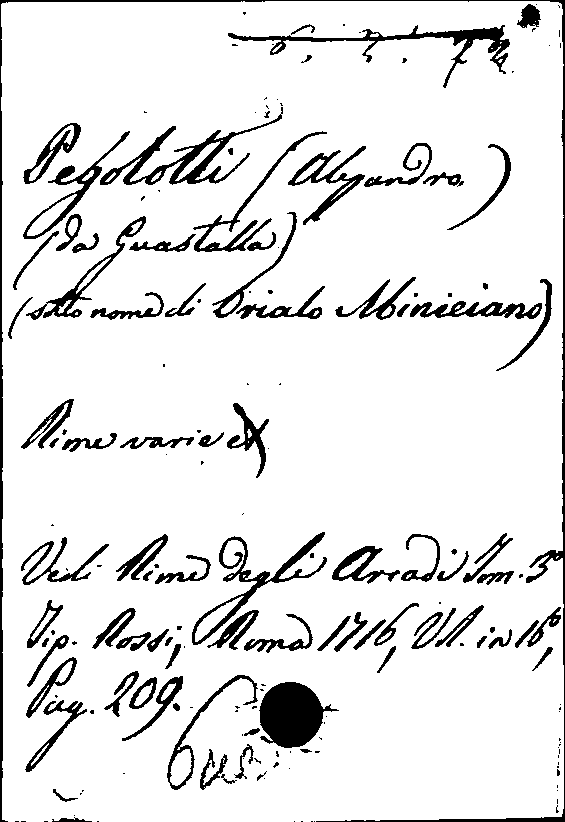 6. 3. 72
Pegolotti (Alessandro)
(da Guastalla)
(sotto nome di Orialo Miniciano)
Rime varie
Vedi Rime degli Arcadi Tom. 3º
Tip. Rossi, Roma 1716, Vol. in 16º,
Pag. 209.